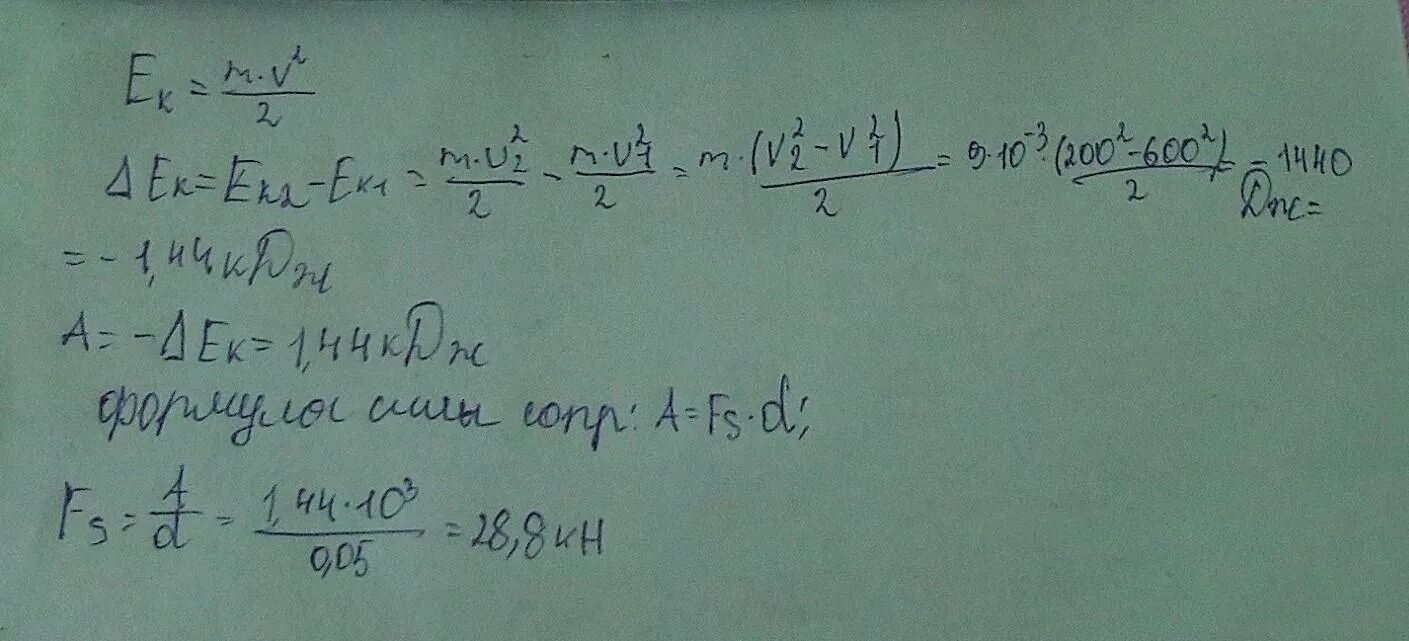 Eк = m·v²/2
ΔEк = Eк2 - Eк1 = m·v₂²/2 - m·v₁²/2 = m·(v₂² - v₁²)/2 = 9·10⁻³·(200² - 600²)/2 = -1440 Дж =
= -1,44 кДж
A = -ΔEк = 1,44 кДж
формула силы сопр: A = Fs·d;
Fs = A/d = 1,44·10³/0,05 = 28,8 кН